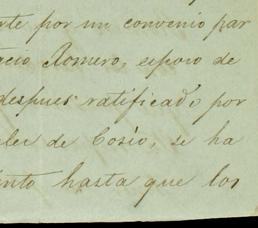 rte por un convenio par
acio Romero, esposo de
despues ratificado por
de Cosío, se ha
into hasta que los